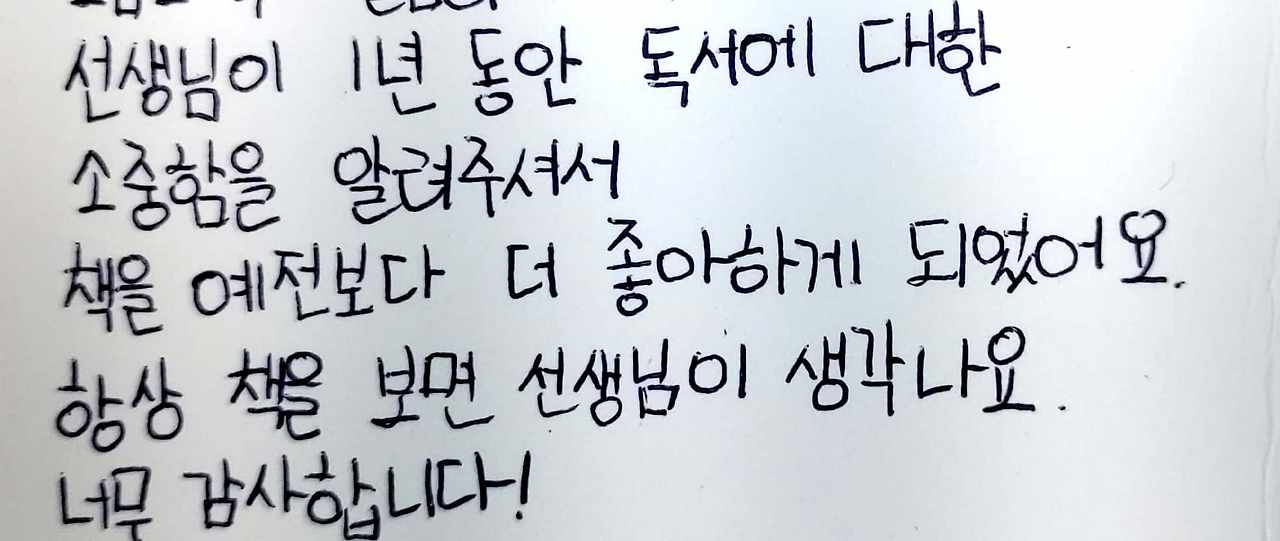 선생님이 1년 동안 독서에 대한
소중함을 알려주셔서
책을 예전보다 더 좋아하게 되었어요.
항상 책을 보면 선생님이 생각나요.
너무 감사합니다!